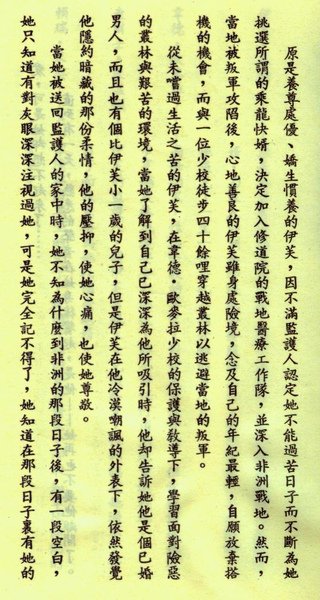 原是養尊處優、嬌生慣養的伊芙，因不滿監護人認定她不能過苦日子而不斷為她
挑選所謂的乘龍快婿，決定加入修道院的戰地醫療工作隊，並深入非洲戰地。然而，
當地被叛軍攻陷後，心地善良的伊芙雖身處險境，念及自己的年紀最輕，自願放棄搭
機的機會，而與一位少校徒步四十餘哩穿越叢林以逃避當地的叛軍。
從未嚐過生活之苦的伊芙，在韋德·歐麥拉少校的保護與教導下，學習面對險惡
的叢林與艱苦的環境，當她了解到自己已深深為他所吸引時，他卻告訴她他是個已婚
男人，而且也有個比伊芙小一歲的兒子，但是伊芙在他冷漠嘲諷的外表下，依然發覺
他隱約暗藏的那份柔情，他的壓抑，使她心痛，也使她尊敬。
當她被送回監護人的家中時，她不知為什麼到非洲的那段日子後，有一段空白，
她只知道有對灰眼深深注視過她，可是她完全記不得了，她知道在那段日子裏有她的